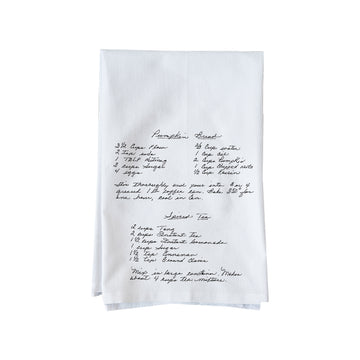 Pumpkin Bread
3½ Cups Flour ⅔ Cup water
2 tsp soda 1 Cup Oil
1 TBLP Nutmeg 2 Cup Pumpkin
3 Cups Sugar 1 Cup Chopped nuts
4 eggs ½ Cup Raisin
Stir thoroughly and pour into
greased 1 lb coffee can. Bake 350 for
one hour, cool in can.
Spiced Tea
2 cups Tang
2 cups Instant tea
1½ cups Instant Lemonade
1 cup Sugar
1½ tsp Cinnamon
1½ tsp Ground Cloves
Mix in large container. Makes
about 4 cups tea mixture.